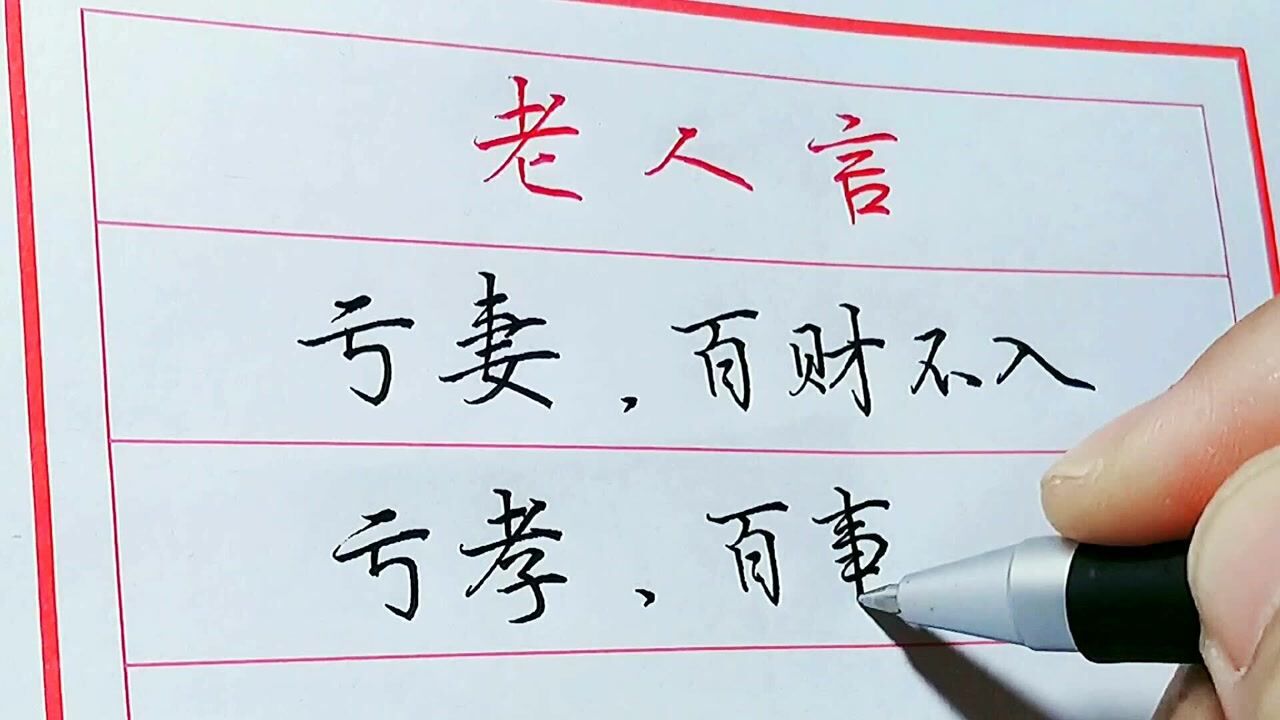 老人言
亏妻，百财不入
亏孝，百事